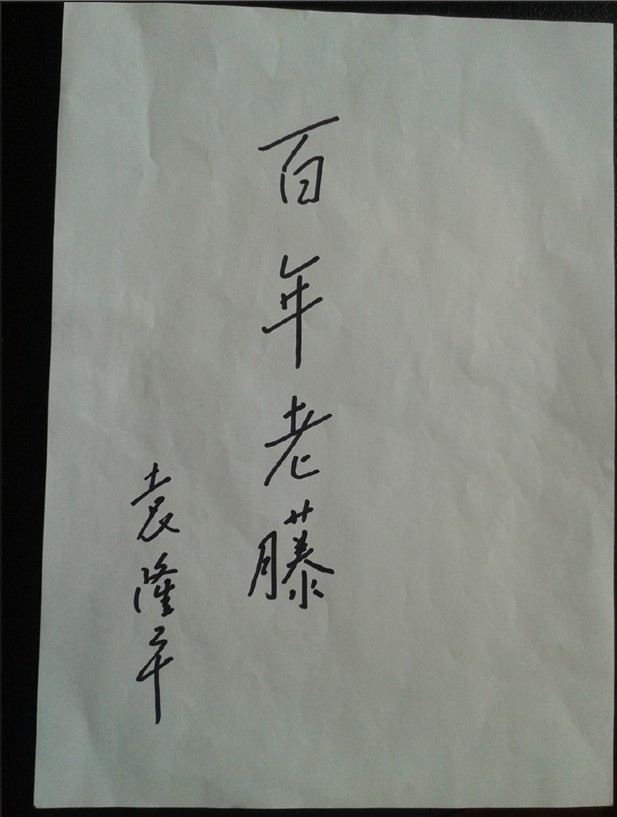 百年老藤
袁隆平